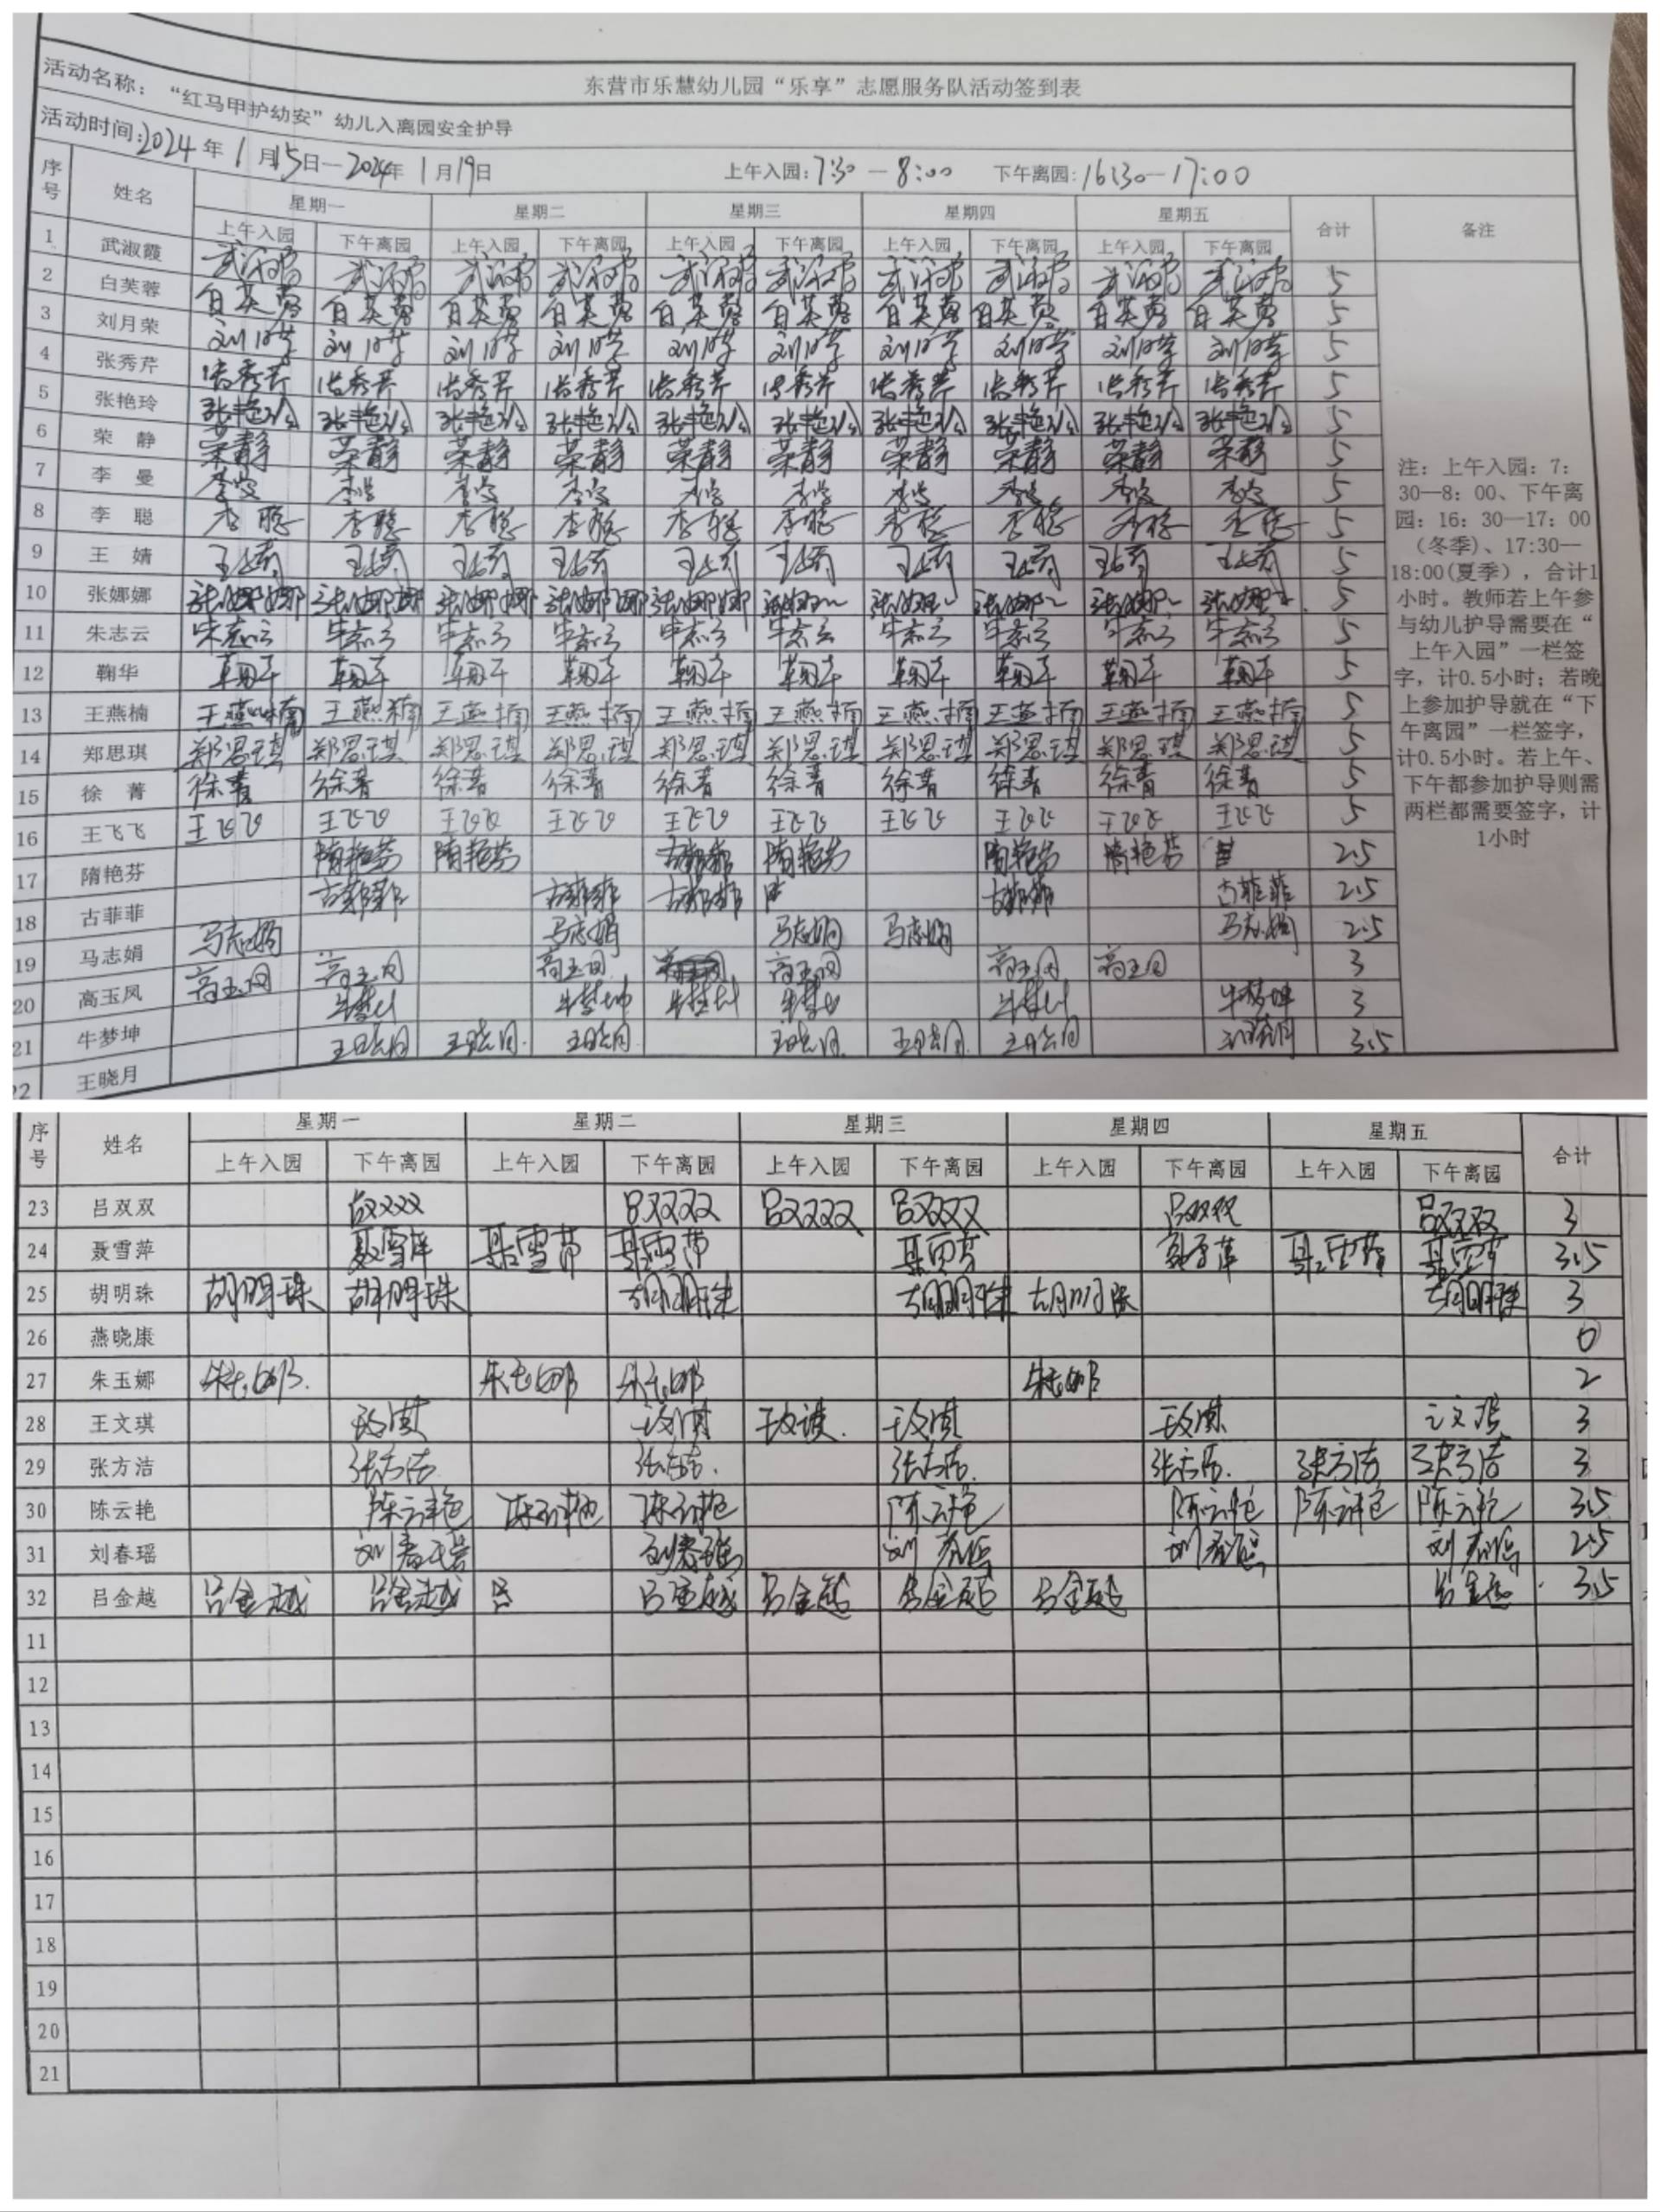 东营市乐慧幼儿园“乐享”志愿服务队活动签到表
活动名称：“红马甲护幼安”幼儿入离园安全护导
活动时间:2024年1月15日—2024年1月19日 上午入园:7:30—8:00 下午离园:16:30—17:00
序号 姓名 星期一 星期二 星期三 星期四 星期五 合计 备注
上午入园 下午离园 上午入园 下午离园 上午入园 下午离园 上午入园 下午离园 上午入园 下午离园
1 武淑霞 5
2 白芙蓉 白芙蓉 白芙蓉 白芙蓉 白芙蓉 白芙蓉 白芙蓉 白芙蓉 白芙蓉 白芙蓉 白芙蓉 5
3 刘月荣 5
4 张秀芹 张秀芹 张秀芹 张秀芹 张秀芹 张秀芹 张秀芹 张秀芹 张秀芹 张秀芹 张秀芹 5
5 张艳玲 张艳玲 张艳玲 张艳玲 张艳玲 张艳玲 张艳玲 张艳玲 张艳玲 张艳玲 张艳玲 5
6 荣静 荣静 荣静 荣静 荣静 荣静 荣静 荣静 荣静 荣静 荣静 5
7 李曼 5
8 李聪 李聪 李聪 李聪 李聪 李聪 李聪 李聪 李聪 李聪 李聪 5
9 王婧 5
10 张娜娜 张娜娜 张娜娜 张娜娜 张娜娜 张娜娜 5
11 朱志云 朱志云 朱志云 朱志云 朱志云 朱志云 朱志云 朱志云 朱志云 朱志云 朱志云 5
12 鞠华 鞠华 鞠华 鞠华 鞠华 鞠华 鞠华 鞠华 鞠华 鞠华 鞠华 5
13 王燕楠 王燕楠 王燕楠 王燕楠 王燕楠 王燕楠 王燕楠 王燕楠 王燕楠 王燕楠 王燕楠 5
14 郑思琪 郑思琪 郑思琪 郑思琪 郑思琪 郑思琪 郑思琪 郑思琪 郑思琪 郑思琪 郑思琪 5
15 徐菁 徐菁 徐菁 徐菁 徐菁 徐菁 徐菁 徐菁 徐菁 徐菁 徐菁 5
16 王飞飞 王飞飞 王飞飞 王飞飞 王飞飞 王飞飞 王飞飞 王飞飞 王飞飞 王飞飞 王飞飞 5
17 隋艳芬 隋艳芬 隋艳芬 隋艳芬 隋艳芬 隋艳芬 2.5
18 古菲菲 古菲菲 古菲菲 古菲菲 古菲菲 古菲菲 2.5
19 马志娟 马志娟 马志娟 马志娟 马志娟 马志娟 2.5
20 高玉凤 3
21 牛梦坤 牛梦坤 牛梦坤 3
22 王晓月 王晓月 王晓月 王晓月 王晓月 王晓月 王晓月 王晓月 3.5
注：上午入园：7：
30—8：00、下午离
园：16：30—17：00
（冬季）、17:30—
18:00(夏季），合计1
小时。教师若上午参
与幼儿护导需要在“
上午入园”一栏签
字，计0.5小时；若晚
上参加护导就在“下
午离园”一栏签字，
计0.5小时。若上午、
下午都参加护导则需
两栏都需要签字，计
1小时
序号 姓名 星期一 星期二 星期三 星期四 星期五 合计
上午入园 下午离园 上午入园 下午离园 上午入园 下午离园 上午入园 下午离园 上午入园 下午离园
23 吕双双 吕双双 吕双双 吕双双 吕双双 吕双双 吕双双 3
24 聂雪萍 聂雪萍 聂雪萍 聂雪萍 聂雪萍 聂雪萍 聂雪萍 聂雪萍 3.5
25 胡明珠 胡明珠 胡明珠 胡明珠 胡明珠 胡明珠 胡明珠 3
26 燕晓康 0
27 朱玉娜 朱玉娜 朱玉娜 朱玉娜 朱玉娜 2
28 王文琪 王文琪 王文琪 王文琪 王文琪 王文琪 王文琪 3
29 张方洁 张方洁 张方洁 张方洁 张方洁 张方洁 张方洁 3
30 陈云艳 陈云艳 陈云艳 陈云艳 陈云艳 陈云艳 陈云艳 陈云艳 3.5
31 刘春瑶 刘春瑶 刘春瑶 刘春瑶 刘春瑶 刘春瑶 2.5
32 吕金越 吕金越 吕金越 吕 吕金越 吕金越 吕金越 吕金越 吕金越 3.5
11
12
13
14
15
16
17
18
19
20
21